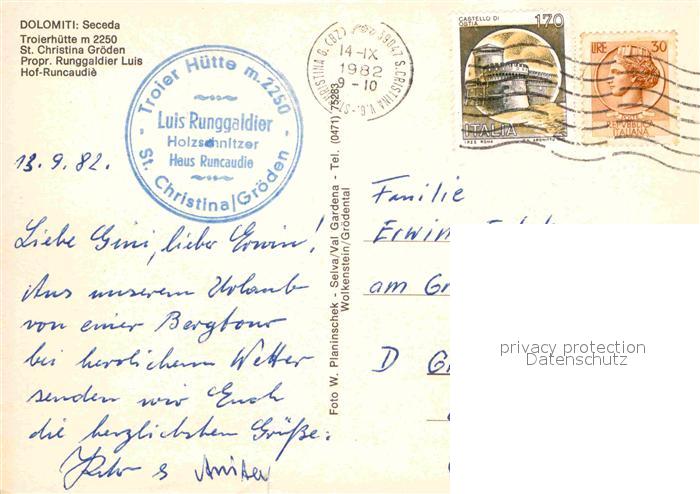 DOLOMITI: Seceda
Troierhütte m 2250
St. Christina Gröden
Propr. Runggaldier Luis
Hof-Runcaudiè
Troier Hütte m. 2250
Luis Runggaldier
Holzschnitzer
Haus Runcaudie
St. Christina/Gröden
39047 S. CRISTINA V.G.-ST. CHRISTINA G. (BZ)
14-IX
1982
9-10
CASTELLO DI OSTIA
170
ITALIA
LIRE 30
POSTE
REPUBBLICA
ITALIANA
13.9.82.
Liebe Gini, lieber Erwin!
Aus unserem Urlaub
von einer Bergtour
bei herrlichem Wetter
senden wir Euch
die herzlichsten Grüße.
Anita
Foto W. Planinschek - Selva/Val Gardena - Tel. (0471) 75283
Wolkenstein/Grödental
Familie
Erwin
am
D
privacy protection
Datenschutz